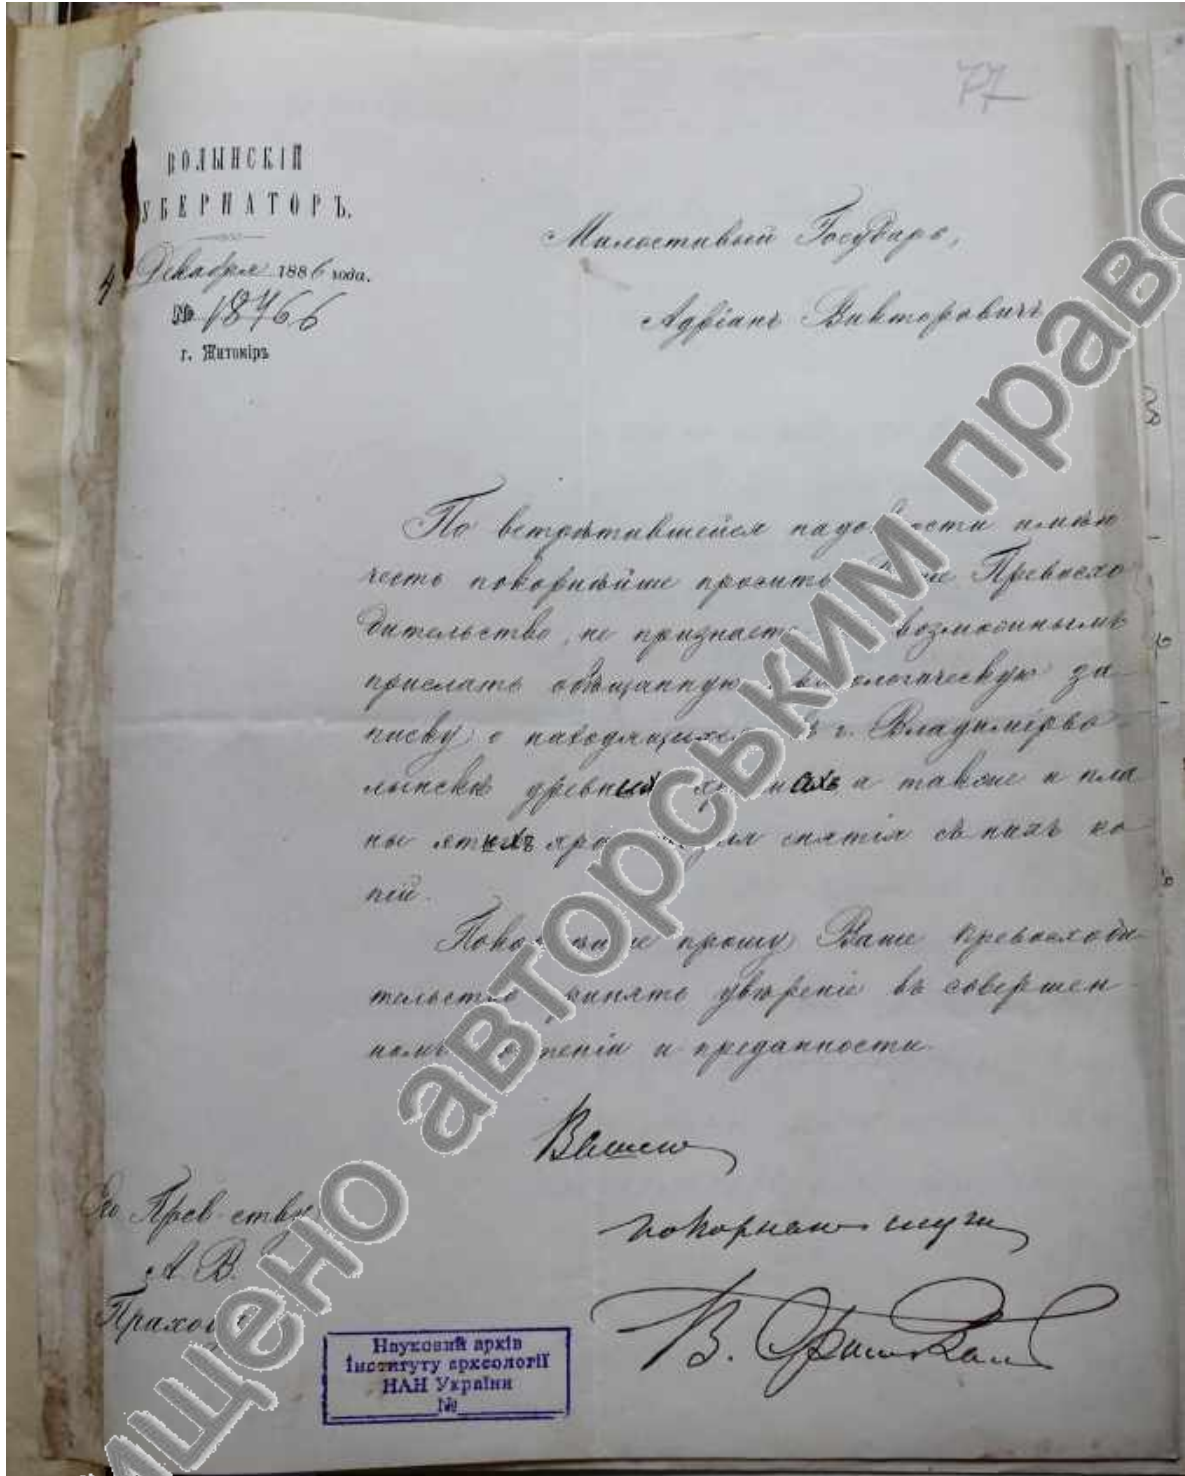 77
ВОЛЫНСКІЙ
УБЕРНАТОРЪ.
4 Декабря 1886 года.
№ 18766
г. Житоміръ
Милостивый Государь,
Адріанъ Викторовичъ
По встрѣтившейся надобности имѣю
честь покорнѣйше просить Ваше Превосхо
дительство, не признаете возможнымъ
прислать обѣщанную археологическую за-
писку о находящихся въ г. Владимірво-
лынскѣ древнихъ храмахъ, а также и пла
ны этихъ для снятія съ нихъ ко-
пій.
Покорнѣйше прошу Ваше превосходи-
тельство принять увѣреніе въ совершен-
номъ почтеніи и преданности.
Вашего
покорнаго слуги
В.
Его Прев-ству
А. В.
Прахову
Науковий архів
Інституту археології
НАН України
№
ищено авторським право